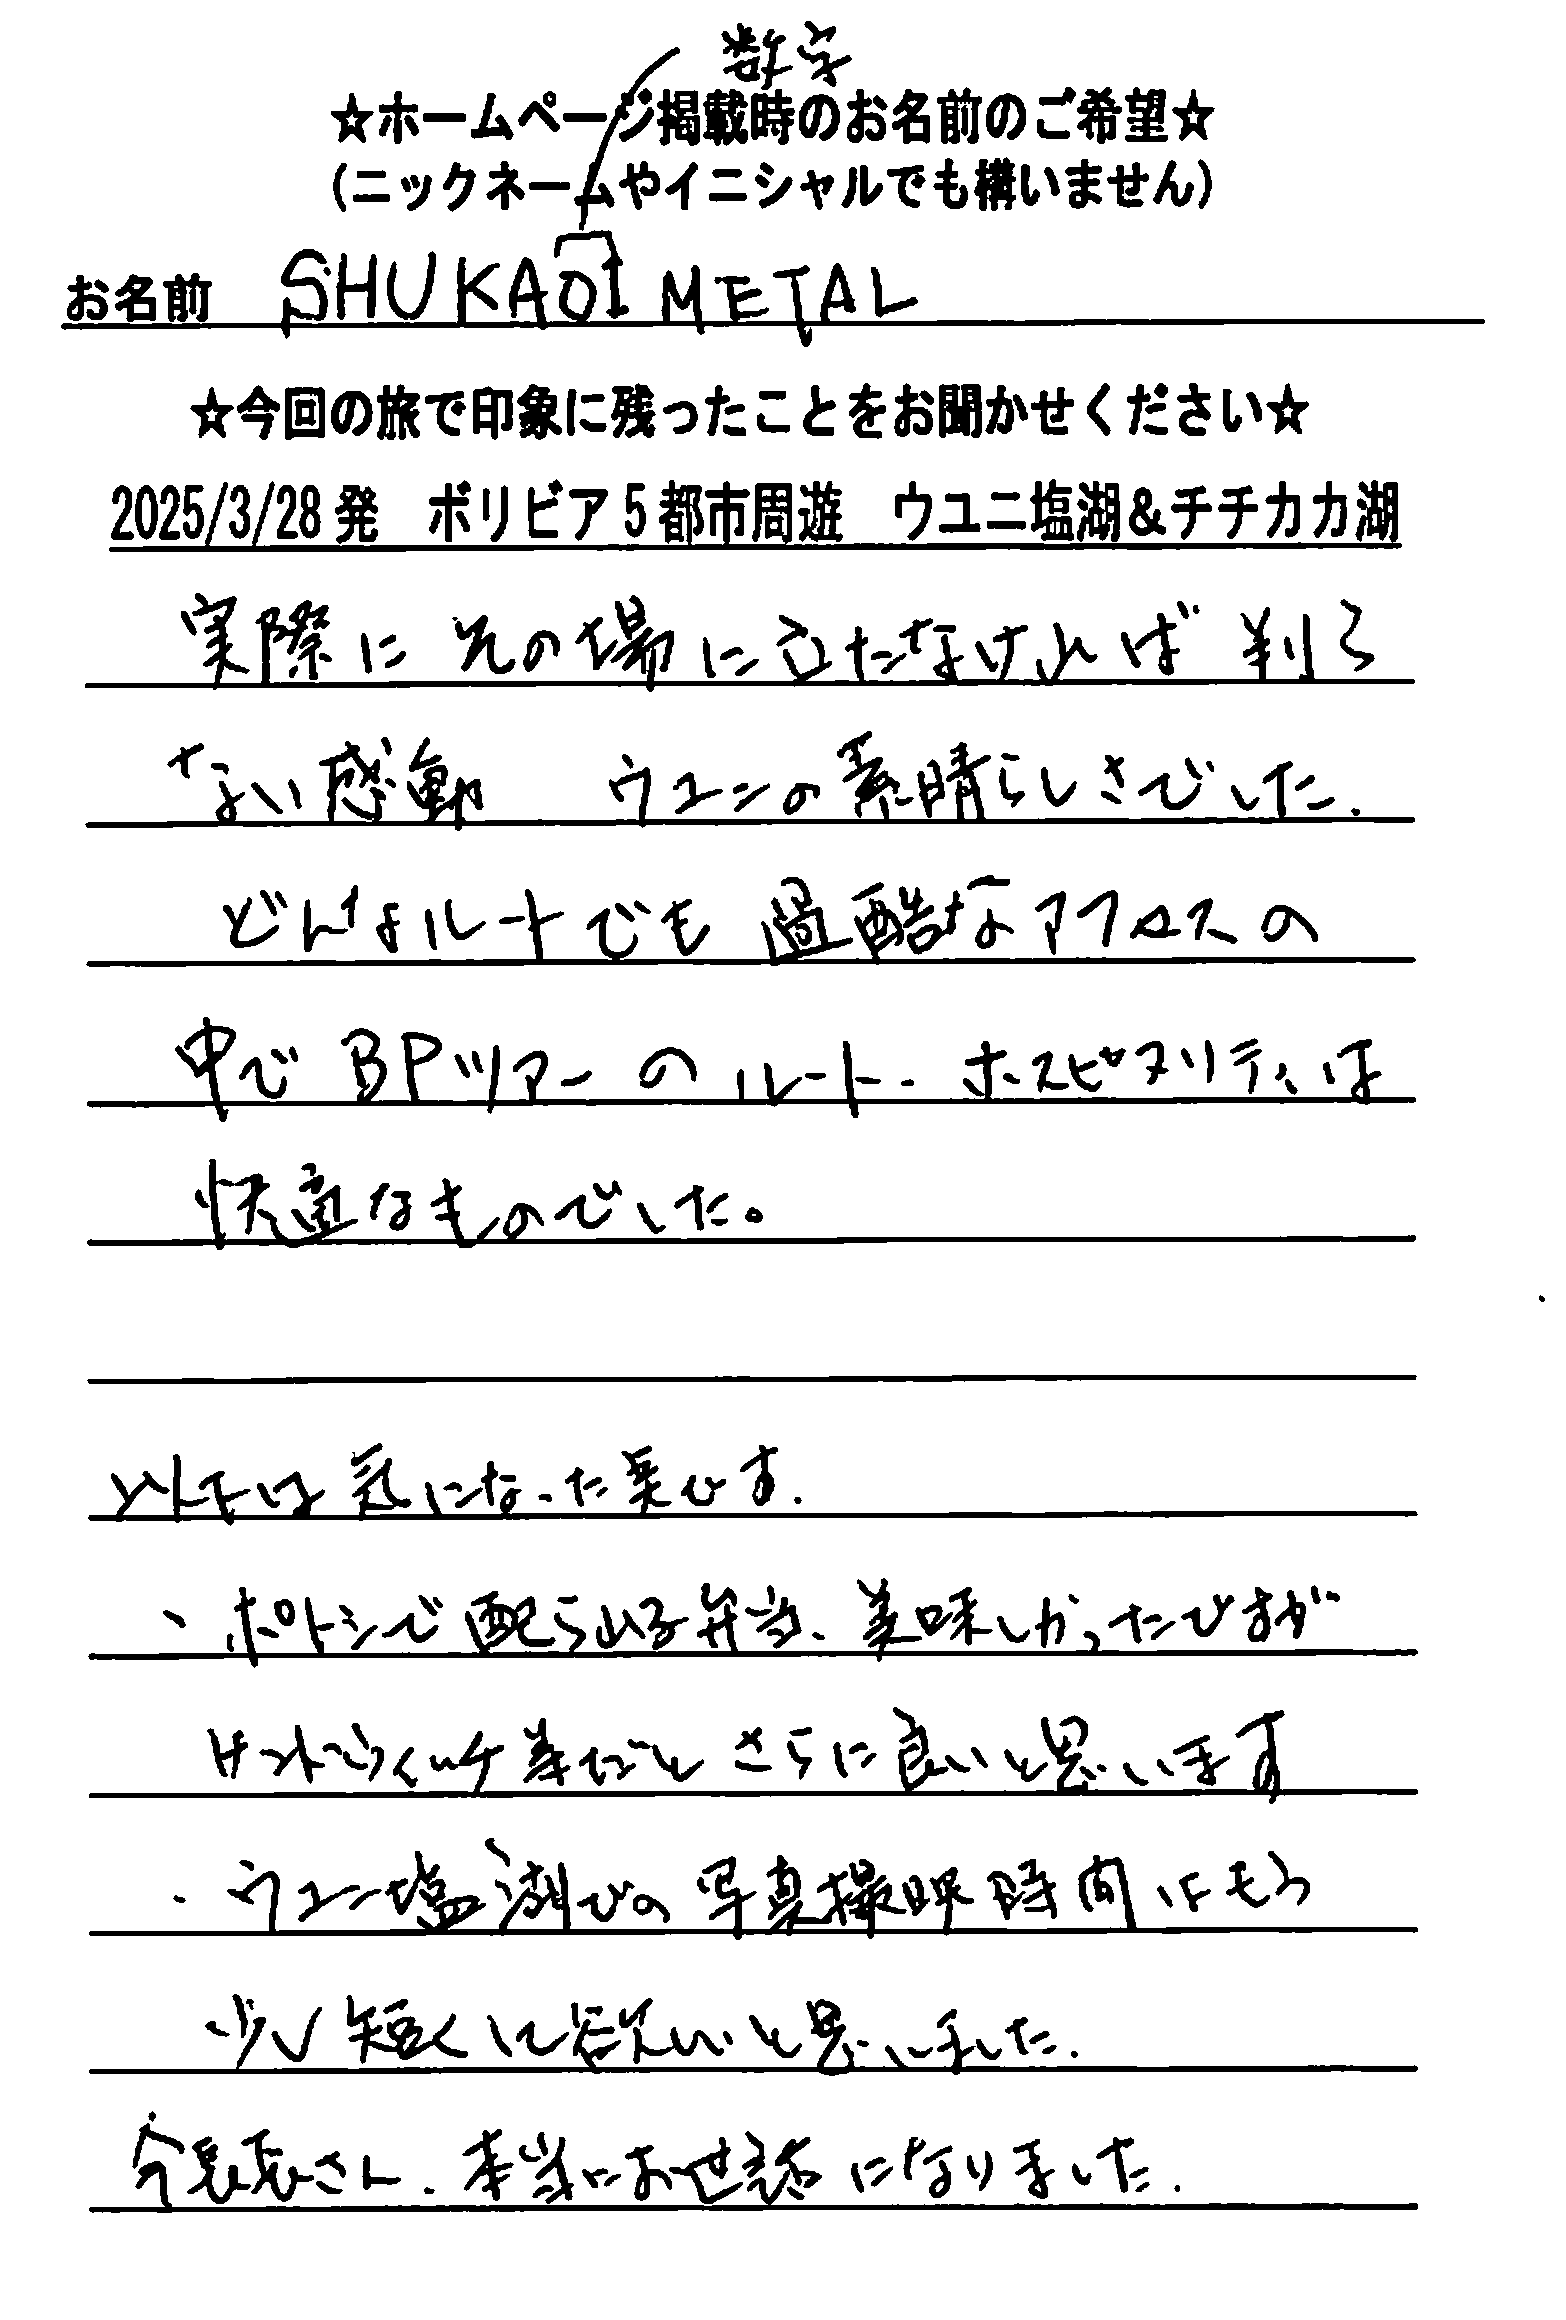 数字
☆ホームページ掲載時のお名前のご希望☆
(ニックネームやイニシャルでも構いません)
お名前 SHUKA01 METAL
☆今回の旅で印象に残ったことをお聞かせください☆
2025/3/28発 ボリビア5都市周遊 ウユニ塩湖&チチカカ湖
実際にその場に立たなければ判ら
ない感動 ウユニの素晴らしさでした.
どんなルートでも過酷なアクセスの
中でBPツアーのルート.ホスピタリティは
快適なものでした。
以下は気になった点です.
、ポトシで配られる弁当、美味しかったですが
サンドウィッチ等だとさらに良いと思います
・ウユニ塩湖での写真撮影時間はもう
少し短くして欲しいと思いました.
さん、本当にお世話になりました.